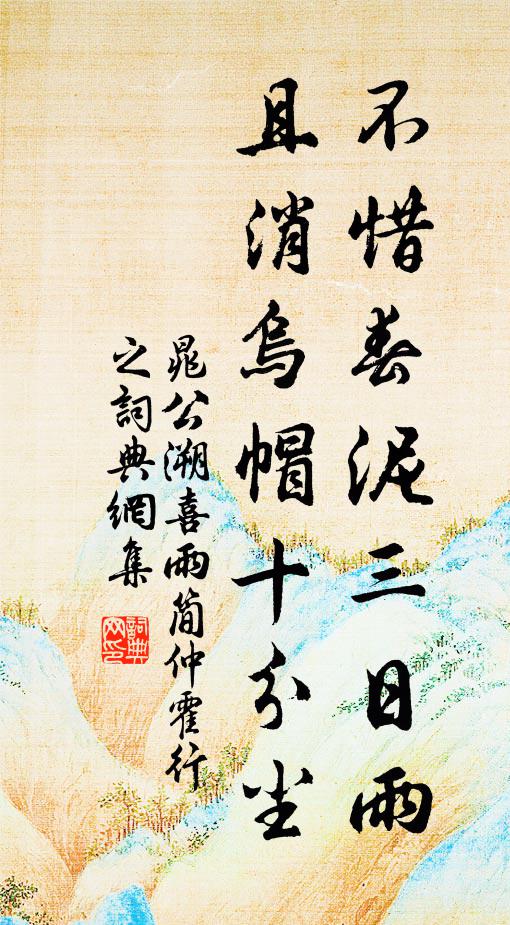 不惜春泥三日雨
且消烏帽十分尘
晁公溯喜雨简仲霍行
之詞典網集
詞典
网印